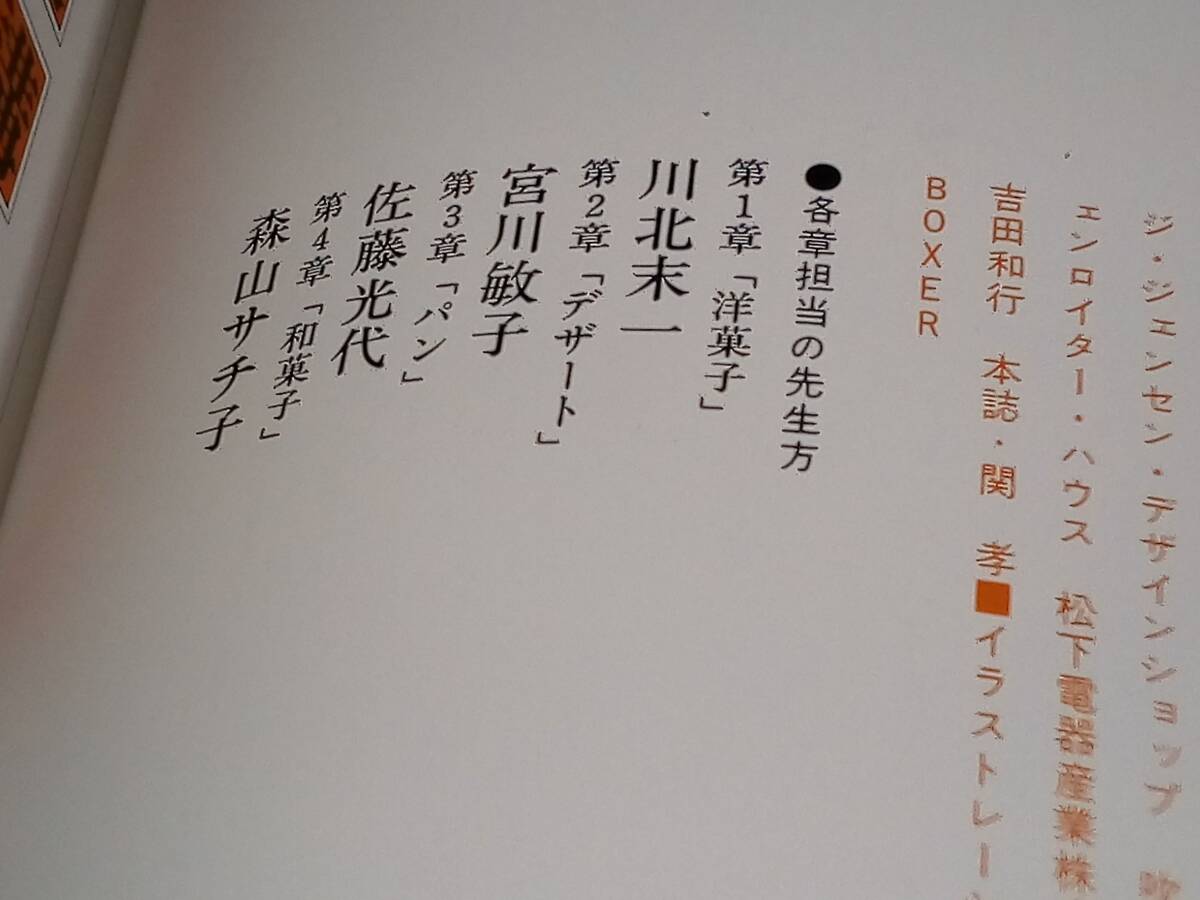 ジ・ジェンセン・デザインショップ 吹
エンロイター・ハウス 松下電器産業株
吉田和行 本誌・関 孝■イラストレーシ
BOXER
●各章担当の先生方
第1章「洋菓子」
川北末一
第2章「デザート」
宮川敏子
第3章「パン」
佐藤光代
第4章「和菓子」
森山サチ子